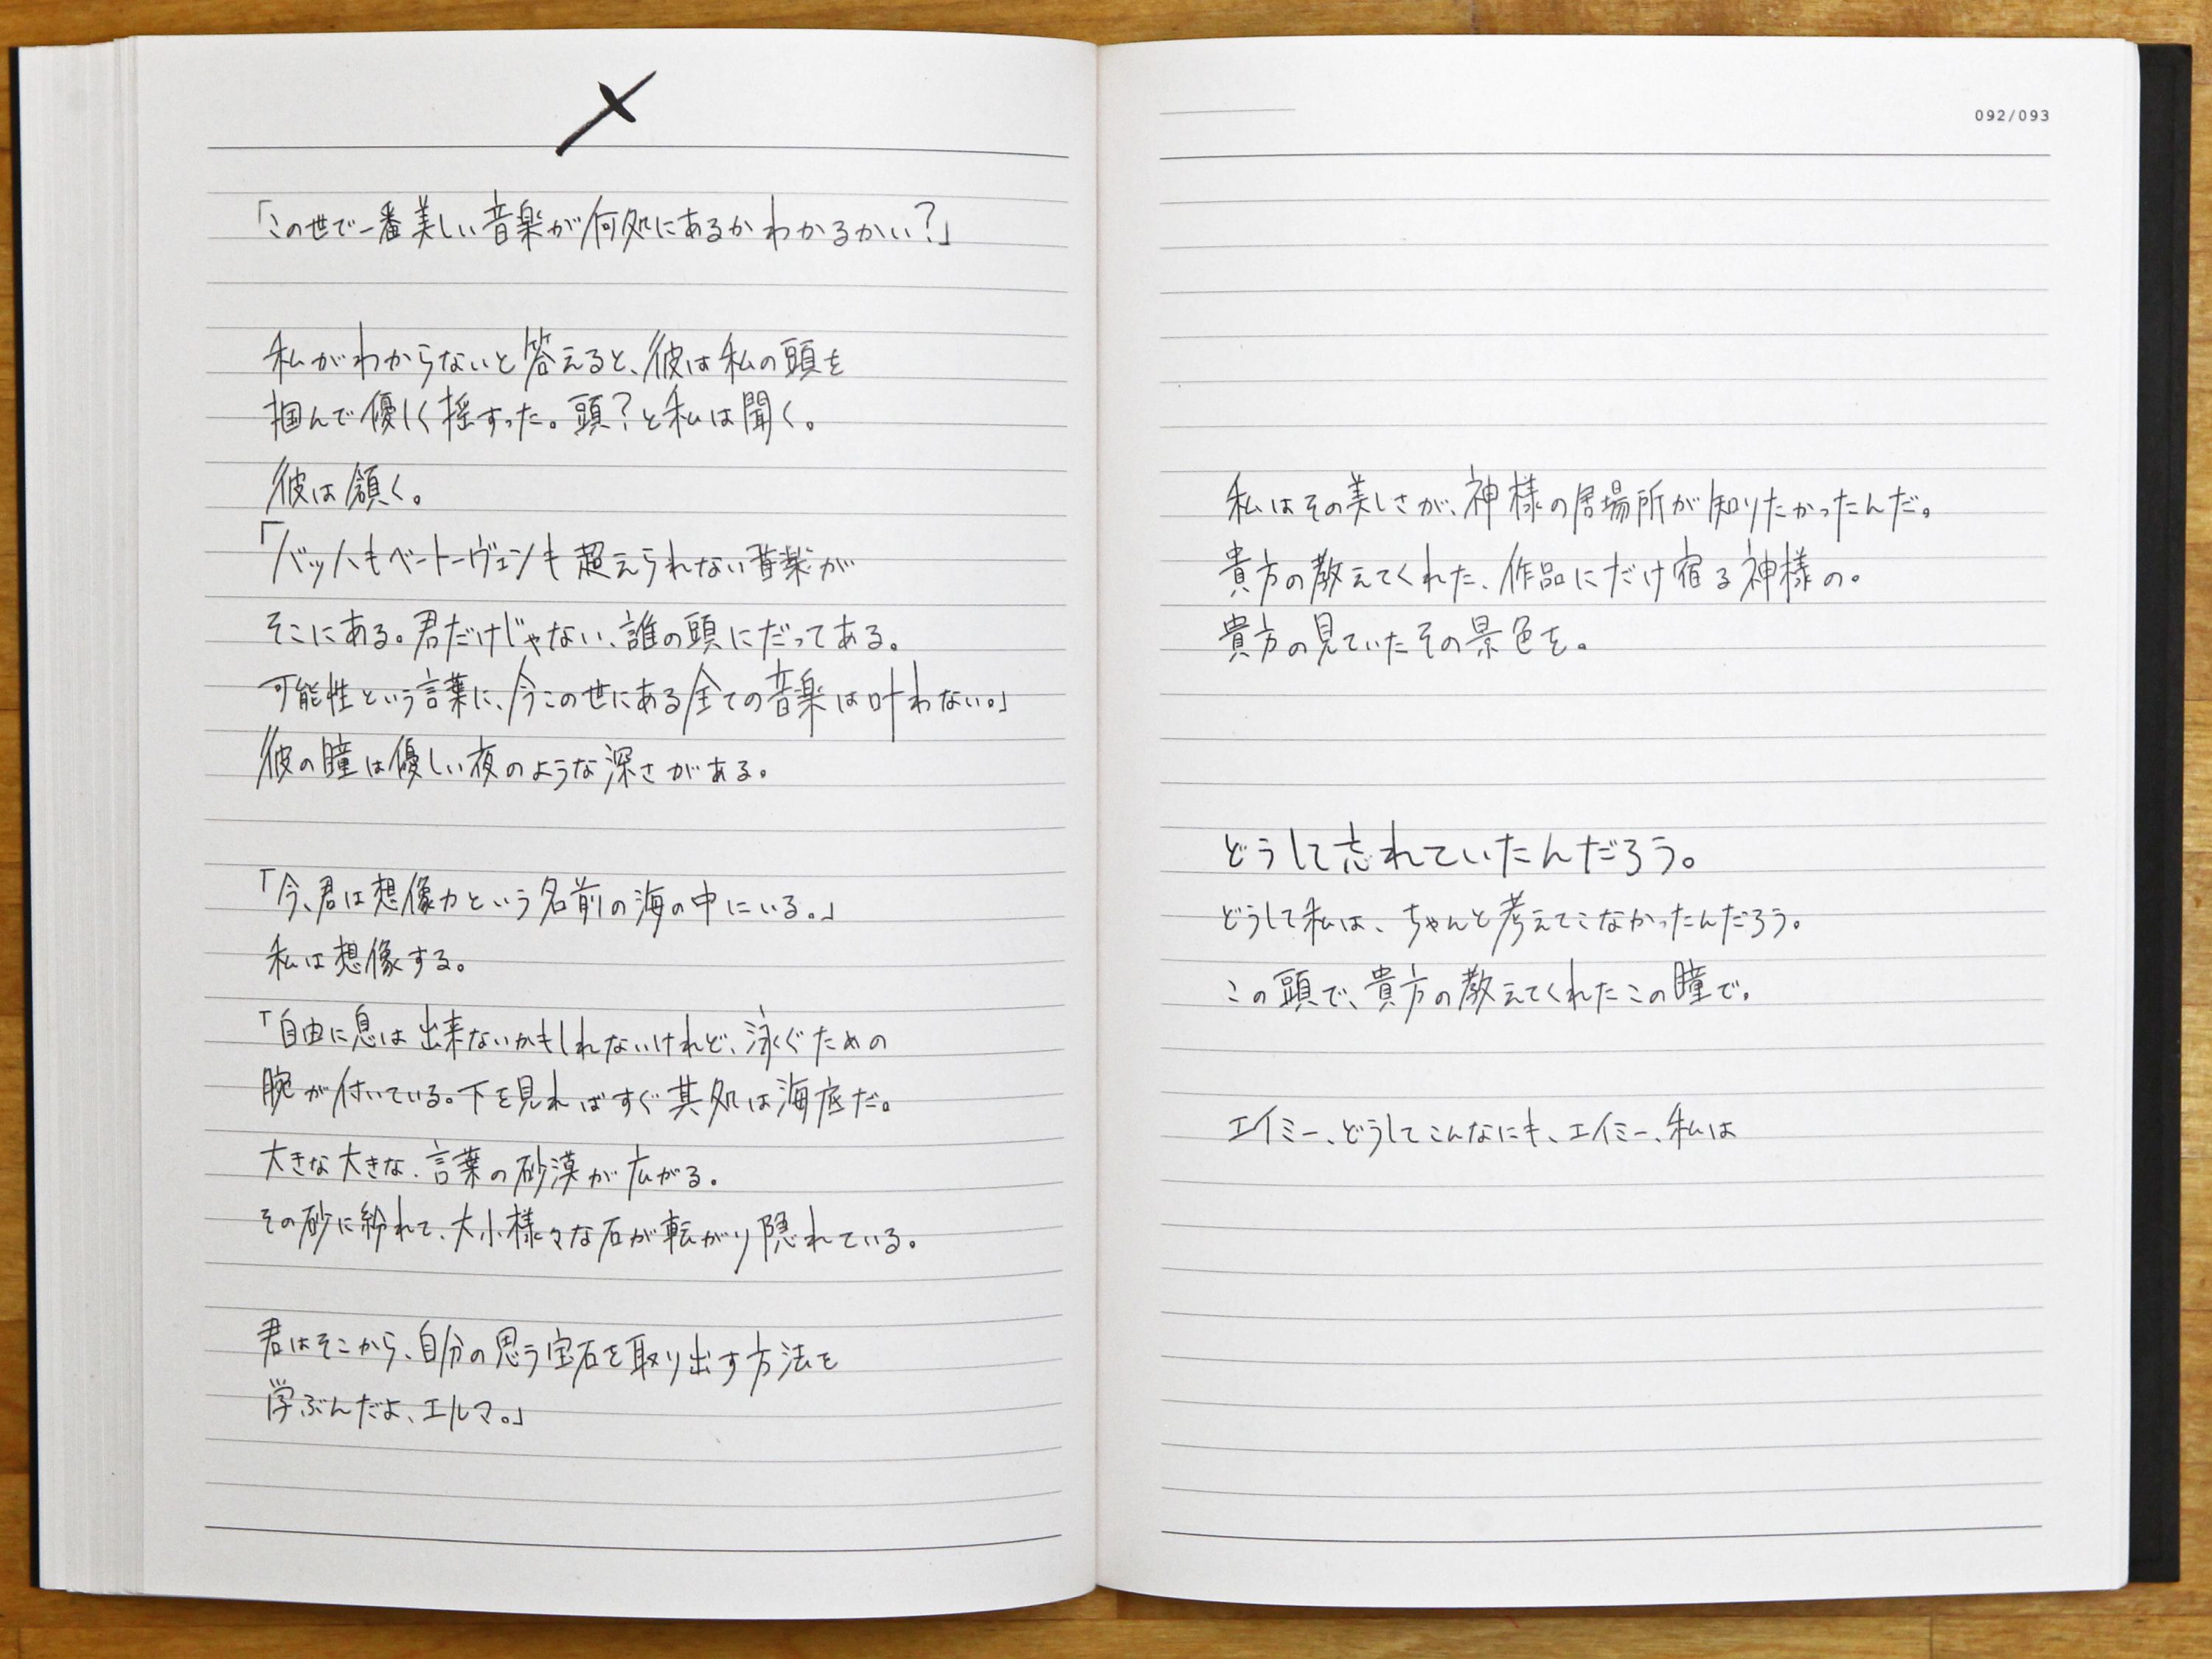 「この世で一番美しい音楽が何処にあるかわかるかい？」
私がわからないと答えると、彼は私の頭を
掴んで優しく揺すった。頭？と私は聞く。
彼は頷く。
「バッハもベートーヴェンも超えられない音楽が
そこにある。君だけじゃない、誰の頭にだってある。
可能性という言葉に、今この世にある全ての音楽は叶わない。」
彼の瞳は優しい夜のような深さがある。
「今、君は想像力という名前の海の中にいる。」
私は想像する。
「自由に息は出来ないかもしれないけれど、泳ぐための
腕が付いている。下を見ればすぐ其処は海底だ。
大きな大きな、言葉の砂漠が広がる。
その砂に紛れて、大小様々な石が転がり隠れている。
君はそこから、自分の思う宝石を取り出す方法を
学ぶんだよ、エルマ。」
092/093
私はその美しさが、神様の居場所が知りたかったんだ。
貴方の教えてくれた、作品にだけ宿る神様の。
貴方の見ていたその景色を。
どうして忘れていたんだろう。
どうして私は、ちゃんと考えてこなかったんだろう。
この頭で、貴方の教えてくれたこの瞳で。
エイミー、どうしてこんなにも、エイミー、私は